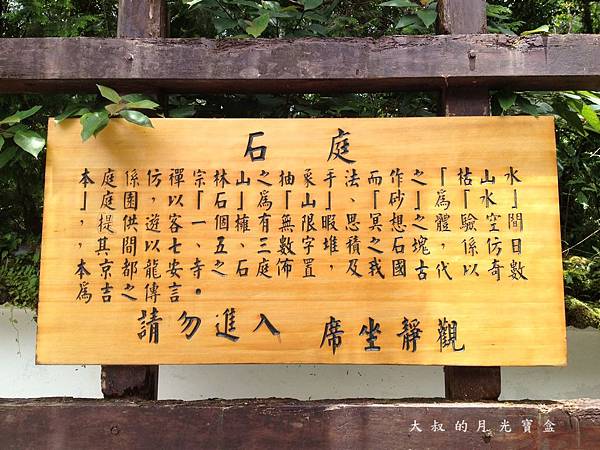 石庭
本庭係仿禪宗林山之抽象手法而作之「枯山水
」庭園,以「石」為「山」、「砂」為「水」
,提供遊客一個擁有無限暇思冥想之體驗空間
,其間以七、五、三數字堆積之石塊係仿日
本京都龍安寺之石庭佈置,及我國古代以奇數
為吉之傳言。
請勿進入 席坐靜觀
大叔的月光寶盒